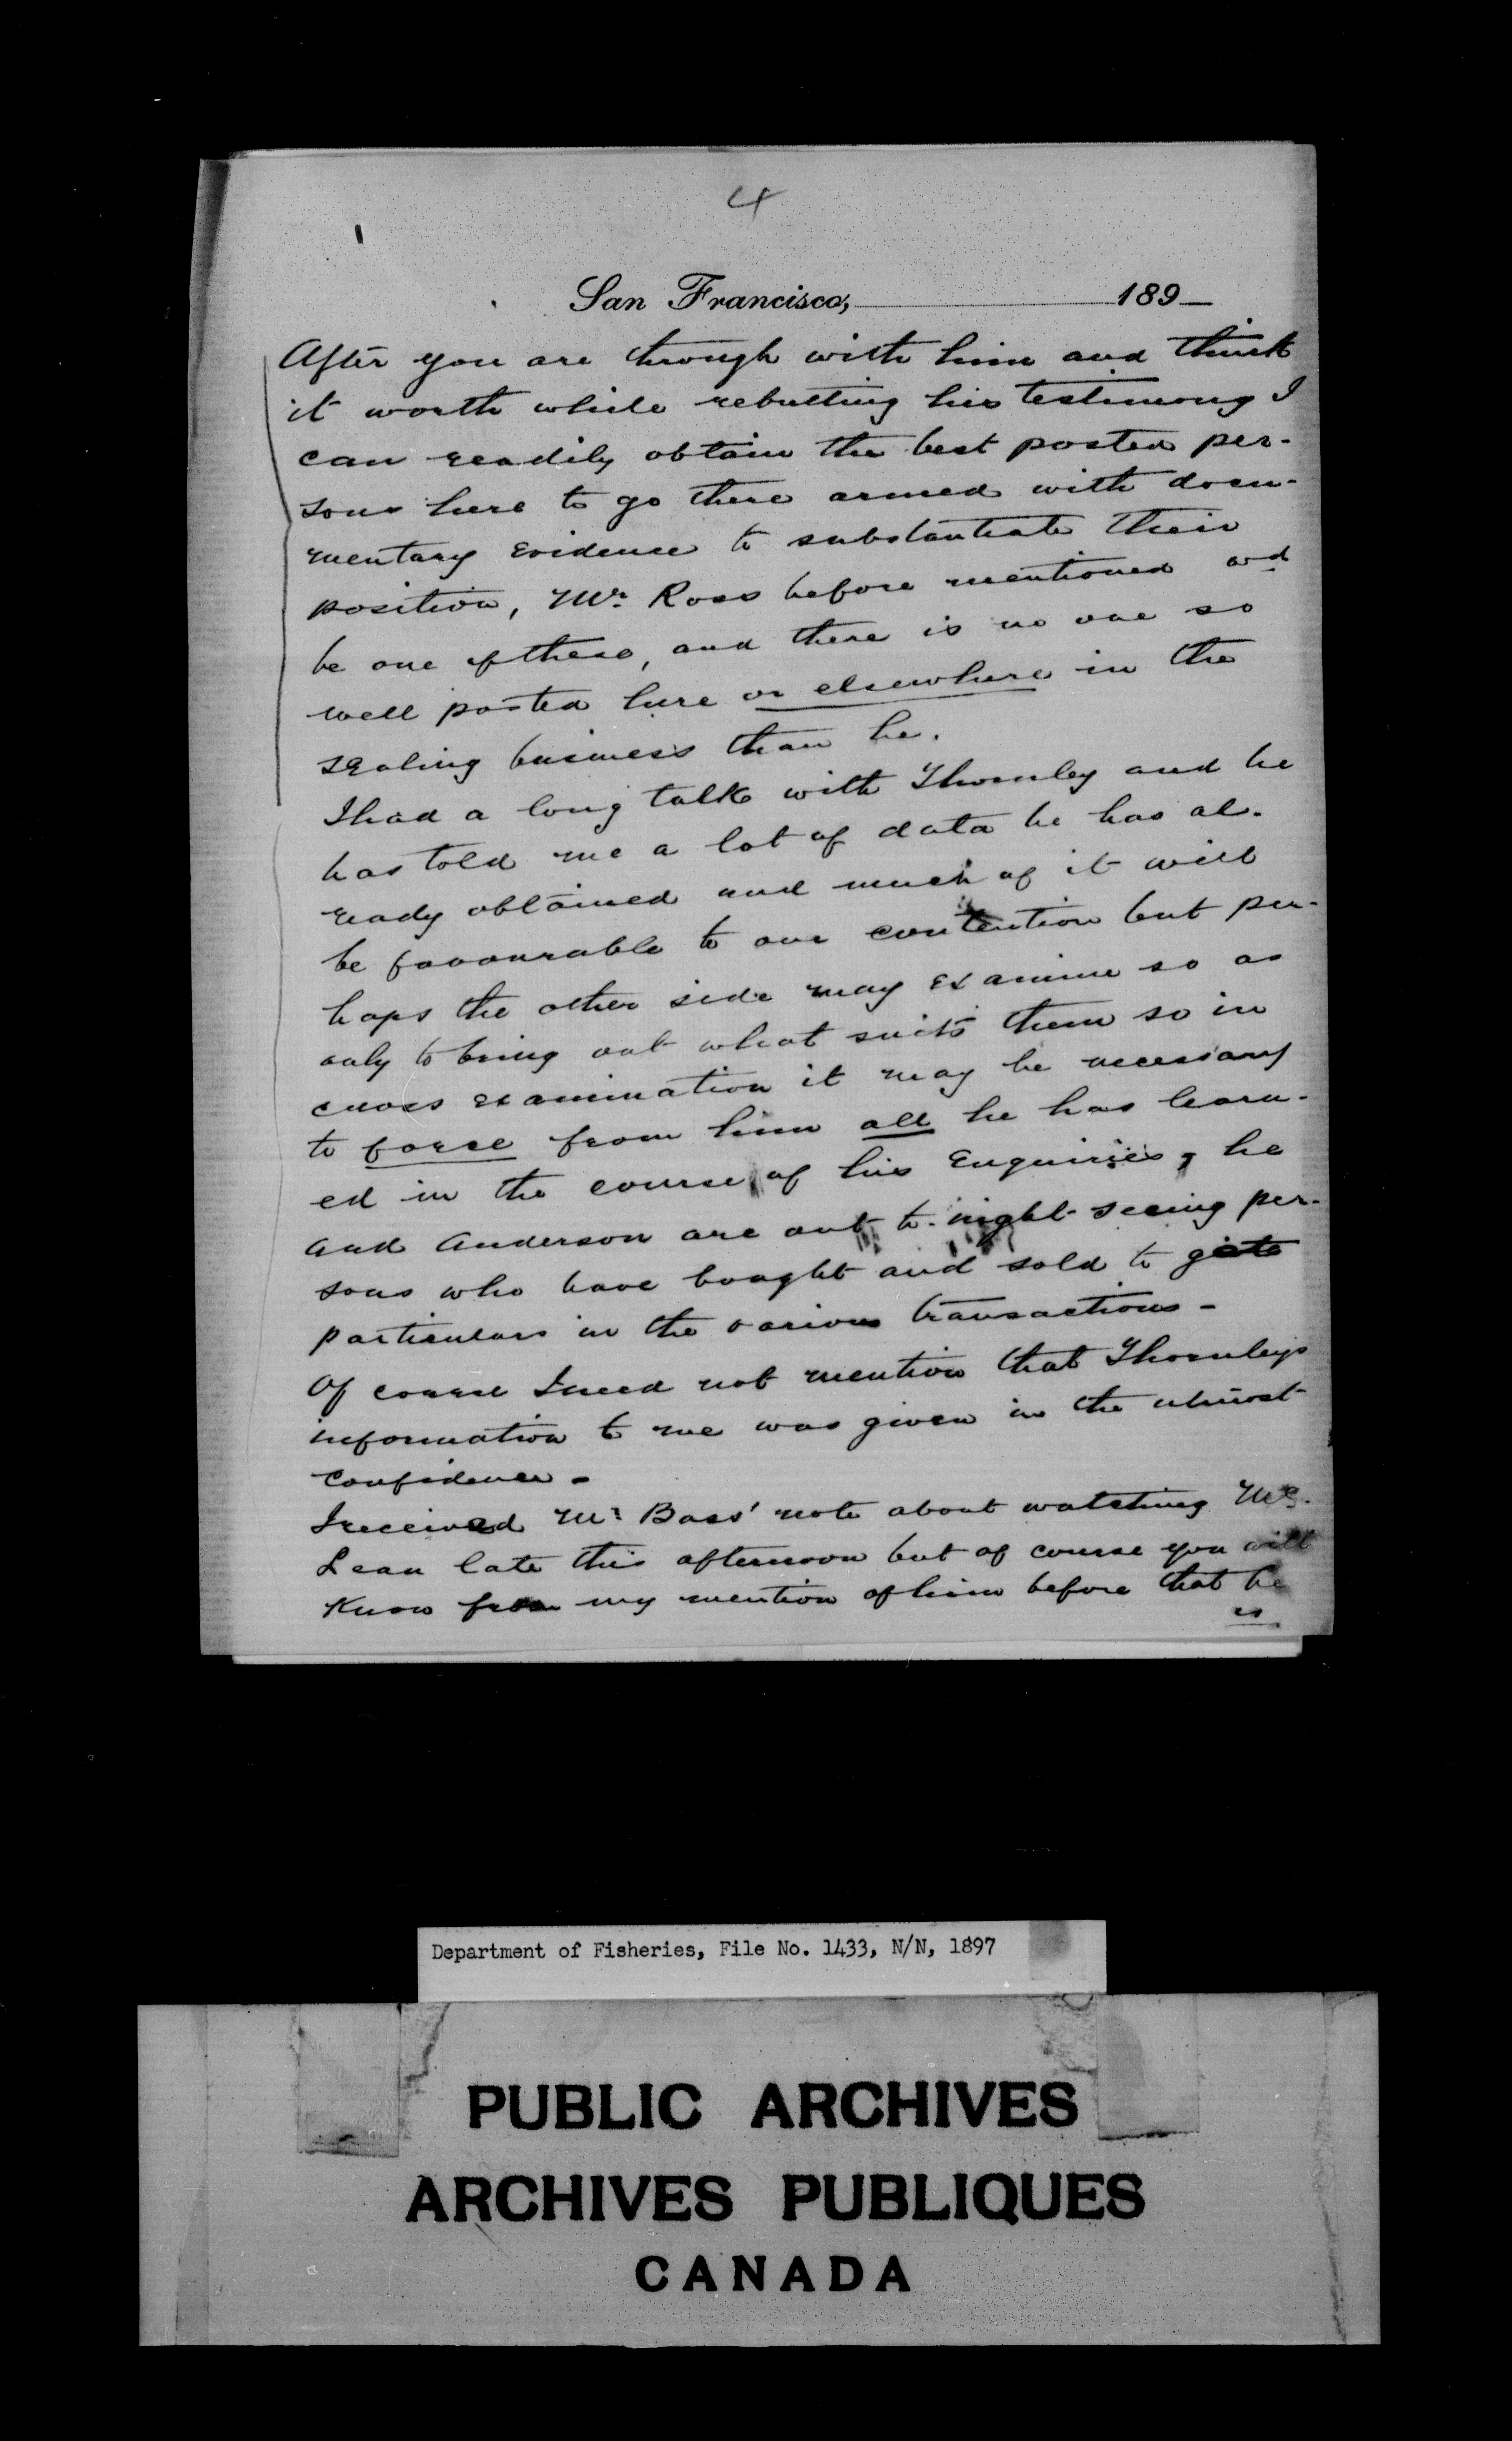 4
San Francisco, 189
After you are through with him and think
it worth while rebutting his testimony I
can readily obtain the best posted per-
sons here to go there armed with docu-
mentary evidence to substantiate their
position, Mr. Ross before mentioned wd
be one of these, and there is no one so
well posted here or elsewhere in the
sealing business than he.
I had a long talk with Thornley and he
has told me a lot of data he has al-
ready obtained and much of it will
be favourable to our contention but per-
haps the other side may examine so as
only to bring out what suits them so in
cross examination it may be necessary
to force from him all he has learn-
ed in the course of his Enquiries, he
and Anderson are out to-night seeing per-
sons who have bought and sold to get
particulars in the various transactions -
Of course I need not mention that Thornleys
information to me was given in the utmost
confidence -
I received Mr. Bass' note about watching Mc-
Lean late this afternoon but of course you will
know from my mention of him before that he
is
Department of Fisheries, File No. 1433, N/N, 1897
PUBLIC ARCHIVES
ARCHIVES PUBLIQUES
CANADA